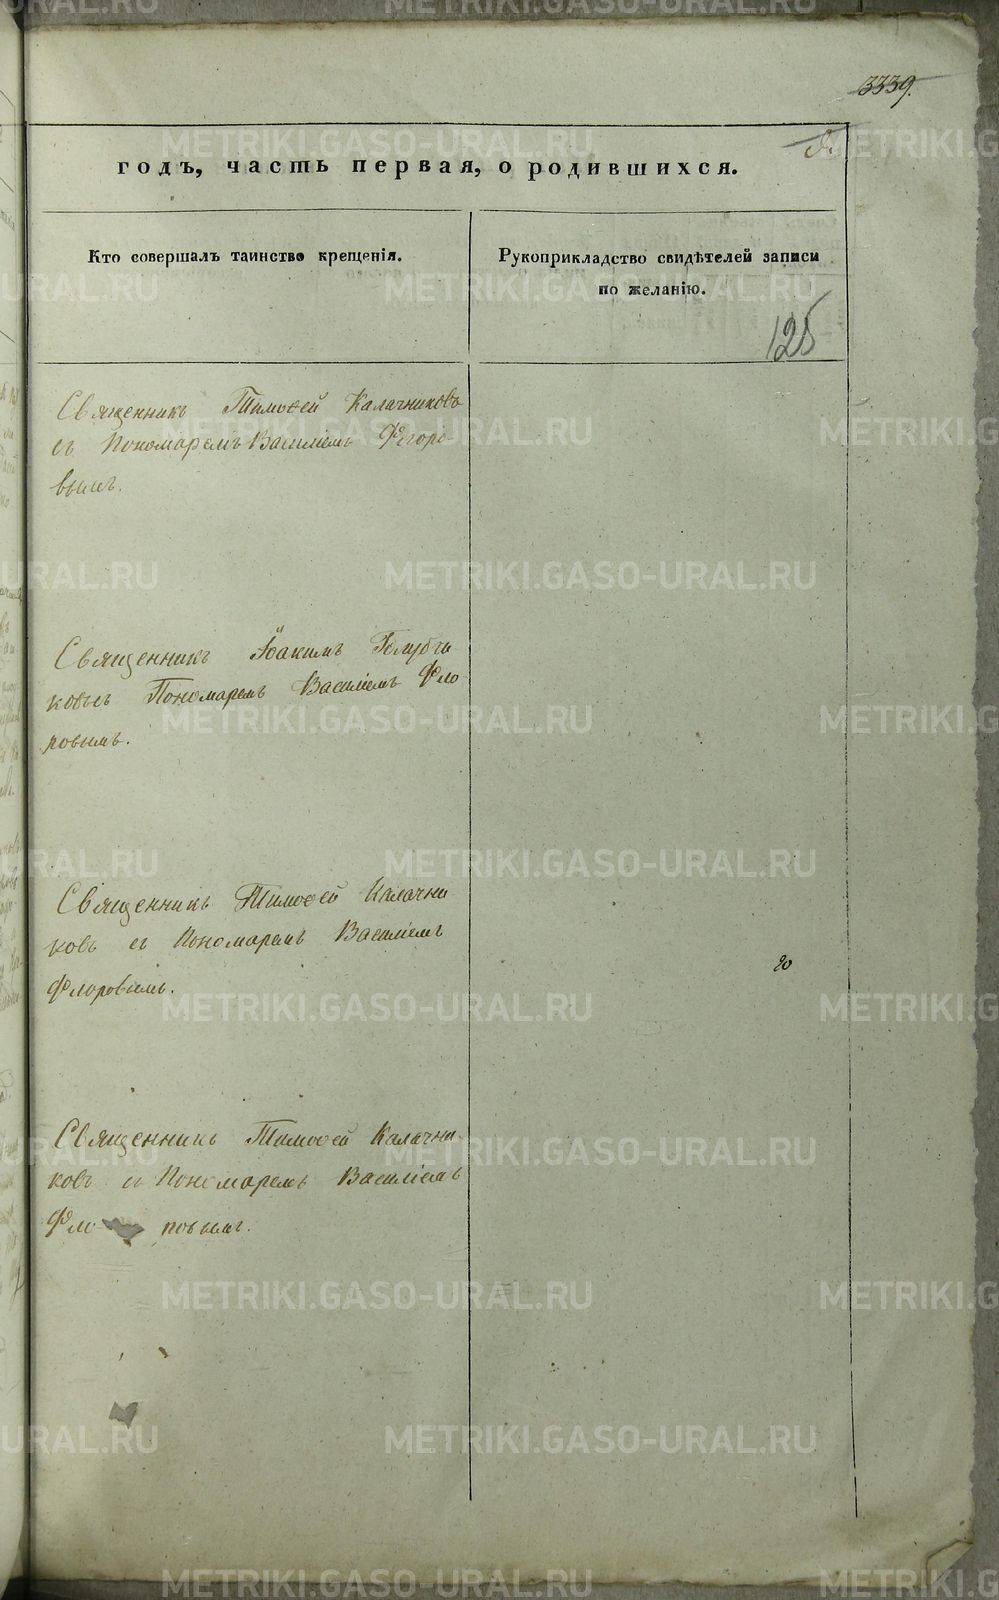 3339.
годъ, часть первая, о родившихся.
Кто совершалъ таинство крещенія.
Рукоприкладство свидѣтелей записи
по желанію.
125
Священникъ Тимоѳей Калачниковъ
съ Пономаремъ Василіемъ Флоро-
вымъ.
Священникъ Іоакимъ Голубчи
ковъ съ Пономаремъ Василіемъ Фло
ровымъ.
Священникъ Тимоѳей Калачни
ковъ съ Пономаремъ Василіемъ
Флоровымъ.
Священникъ Тимоѳей Калачни-
ковъ съ Пономаремъ Василіемъ
Фло- ровымъ.
METRIKI.GASO-URAL.RU